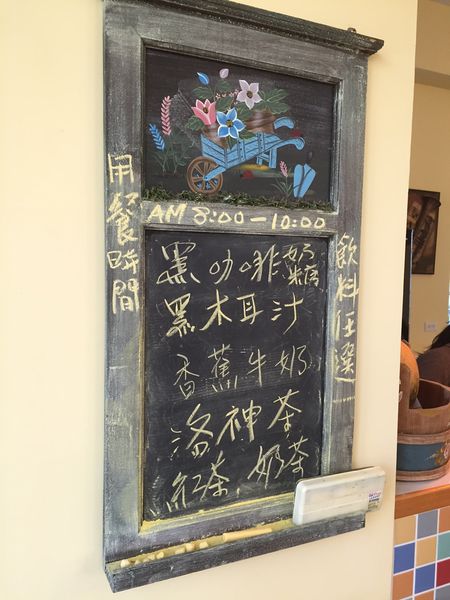 用餐時間
AM 8:00-10:00
飲料任選
黑咖啡奶糖
黑木耳汁
香蕉牛奶
洛神茶
紅茶、奶茶